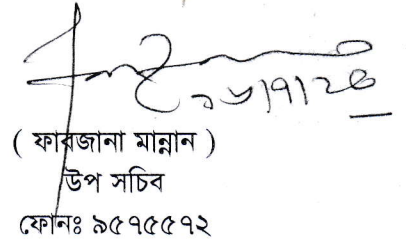 ( ফারজানা মান্নান )
উপ সচিব
ফোনঃ ৯৫৭৫৫৭২